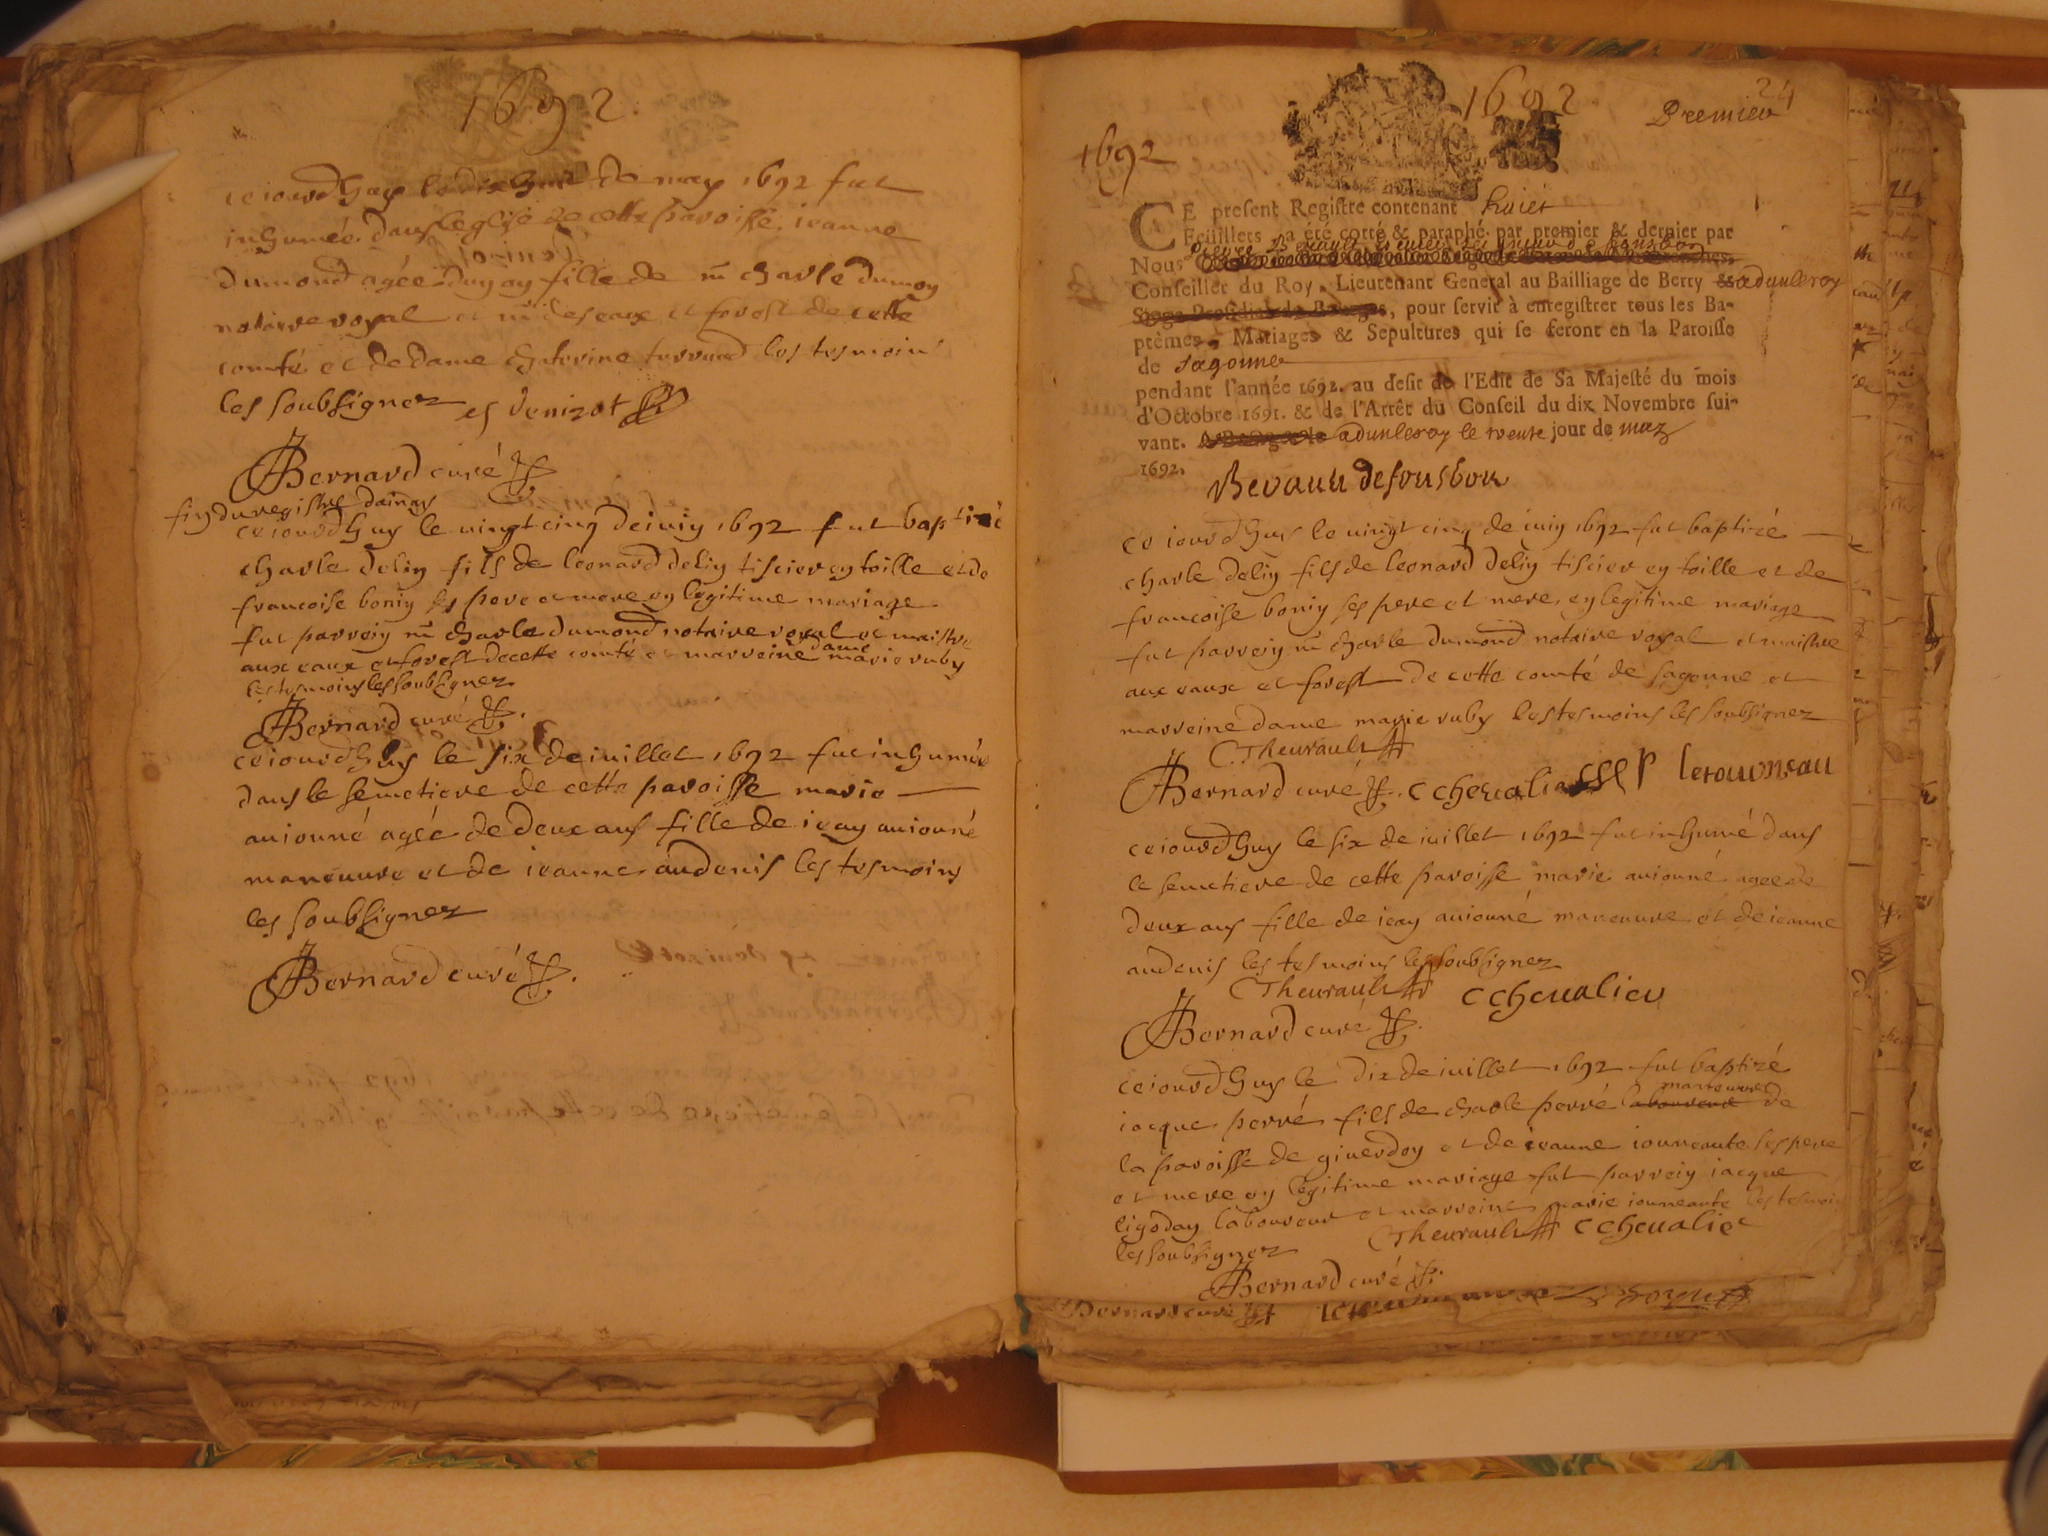 1692.
ceiourdhuy le dix huit de may 1692 fut
inhumée dans leglise de cette paroisse ieanne
dumond agée dun an fille de me charle dumon
notaire royal et me des eaux et forest de cette
comté et de dame caterine terrand les tesmoins
les soubsignez et Venizot
Bernard curé
fin du registre dainay
ceiourdhuy le vingt cinq de iuin 1692 fut baptizé
charle delin fils de leonard delin tiscier en toille et de
francoise bonin ses pere et mere en legitime mariage
fut parrein me charle dumond notaire royal et maistre
aux eaux et forest de cette comté et marreine dame marie ruby
les tesmoins les soubsignez
Bernard curé
ceiourdhuy le six de iuillet 1692 fut inhumée
dans le semetiere de cette paroisse marie
auionné agée de deux ans fille de iean auionné
maneuure et de ieanne audenis les tesmoins
les soubsignez
Bernard curé
1692
24
Premier
1692
CE present Registre contenant huict
Feüillets a été cotté & paraphé par premier & dernier par
Nous
Conseiller du Roy, Lieutenant General au Bailliage de Berry & a dunleroy
Siege Presidial de Bourges, pour servir à enregistrer tous les Ba-
ptêmes, Mariages & Sepultures qui se feront en la Paroisse
de Sagonne
pendant l'année 1692. au desir de l'Edit de Sa Majesté du mois
d'Octobre 1691. & de l'Arrêt du Conseil du dix Novembre sui-
vant. a dunleroy le trente jour de may
1692.
ceiourdhuy le vingt cinq de iuin 1692 fut baptizé
charle delin fils de leonard delin tiscier en toille et de
francoise bonin ses pere et mere en legitime mariage
fut parrein me charle dumond notaire royal et maistre
aux eaux et forest de cette comté de sagonne et
marreine dame marie ruby les tesmoins les soubsignez
Theurault
Bernard curé c chevalier P letourneau
ceiourdhuy le six de iuillet 1692 fut inhumé dans
le semetiere de cette paroisse marie auionné agee de
deux ans fille de iean auionné maneuure et de ieanne
audenis les tesmoins les soubsignez
Theurault c chevalier
Bernard curé
ceiourdhuy le dix de iuillet 1692 fut baptizé
maneuure
iacque perré fils de charle perré laboureur de
la paroisse de giverdon et de ieanne iourneante ses pere
et mere en legitime mariage fut parrein iacque
ligoday laboureur et marreine marie iourneante les tesmoins
les soubsignez Theurault c chevalier
Bernard curé
Bernard curé